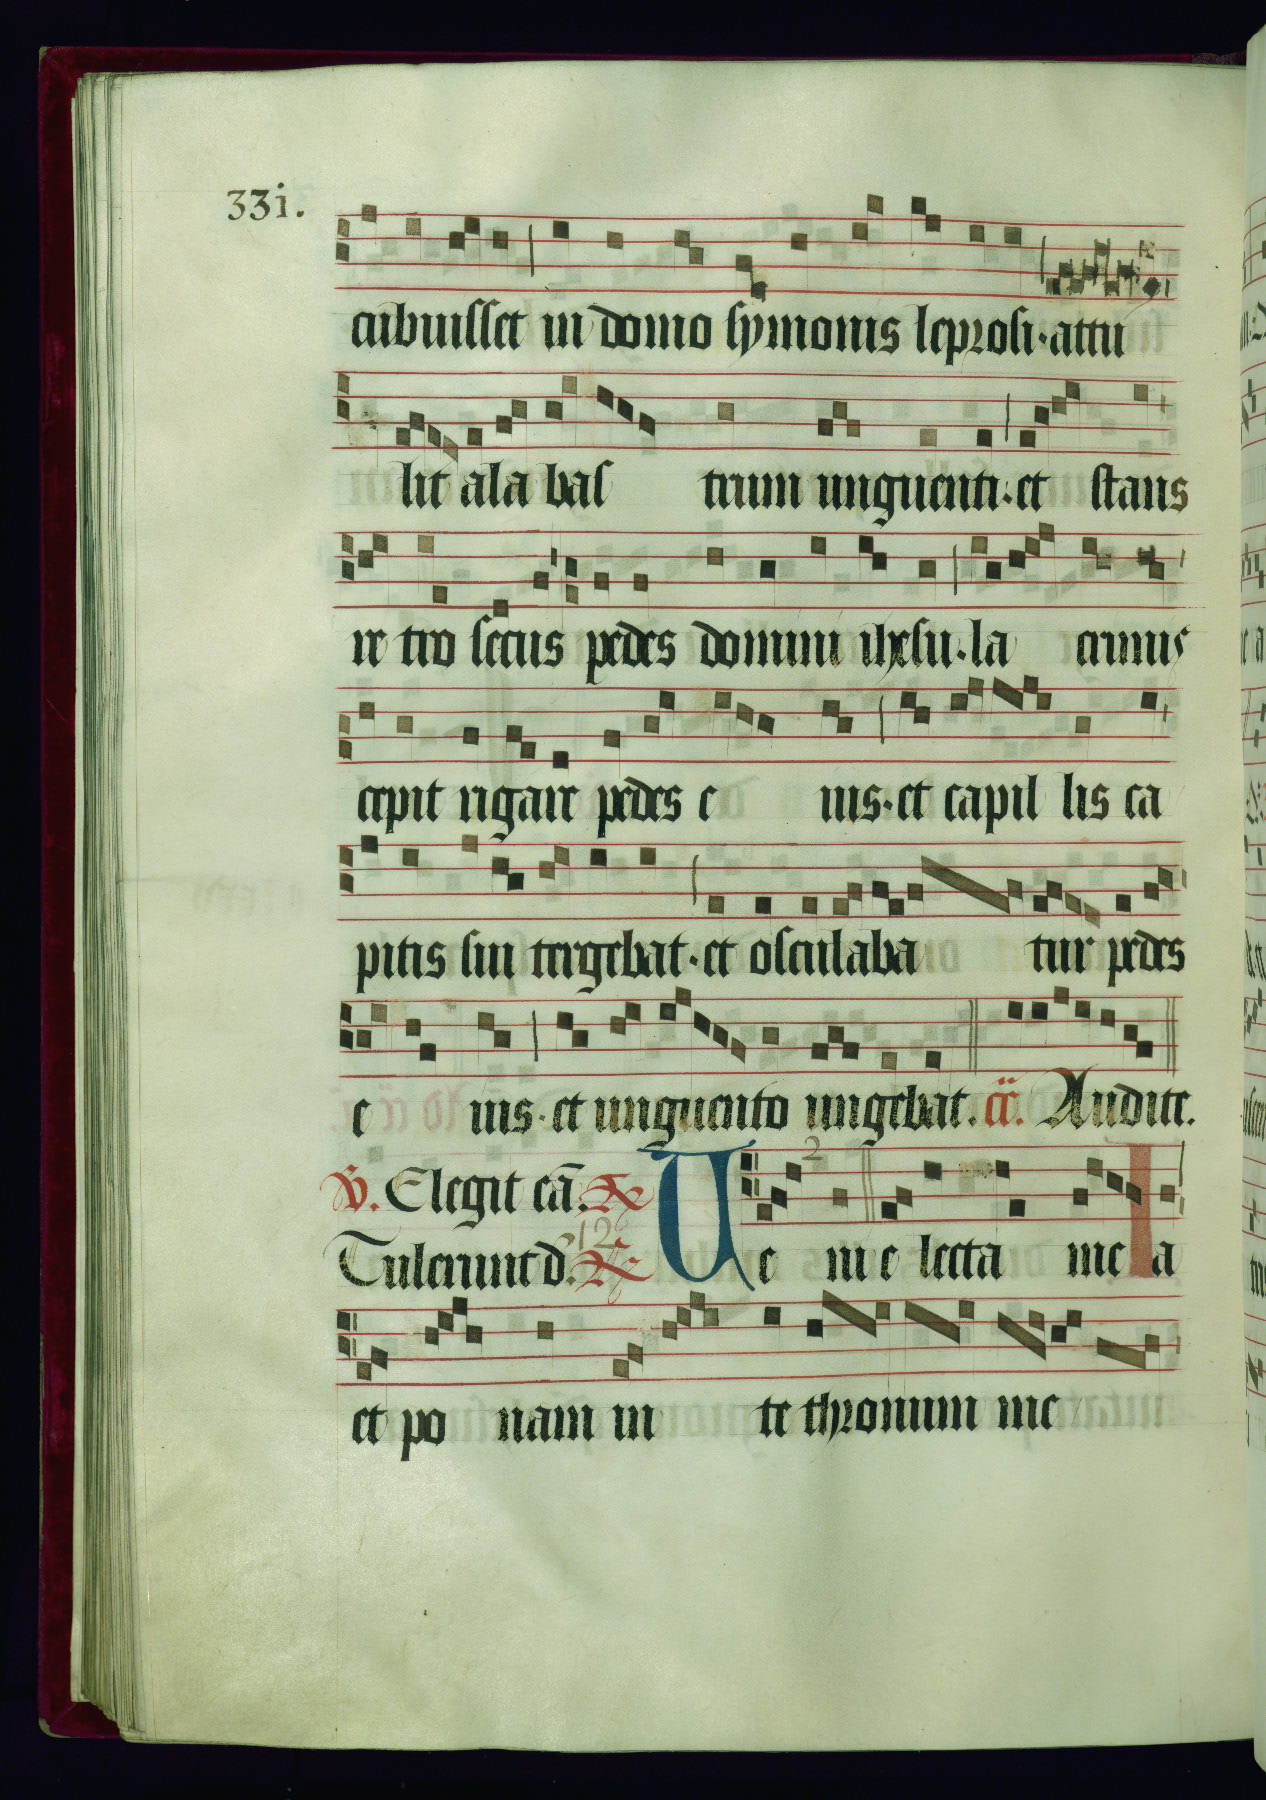 331.
cubuisset in domo symonis leprosi·attu
lit ala bas trum unguenti·et stans
re tro secus pedes domini ihesu·la crimis
cepit rigare pedes e ius·et capil lis ca
pitis sui tergebat·et osculaba tur pedes
e ius·et unguento ungebat. Audite.
2
V. Elegit eā.
12
Tulerunt d. Ue ni e lecta me a
et po nam in te thronum me